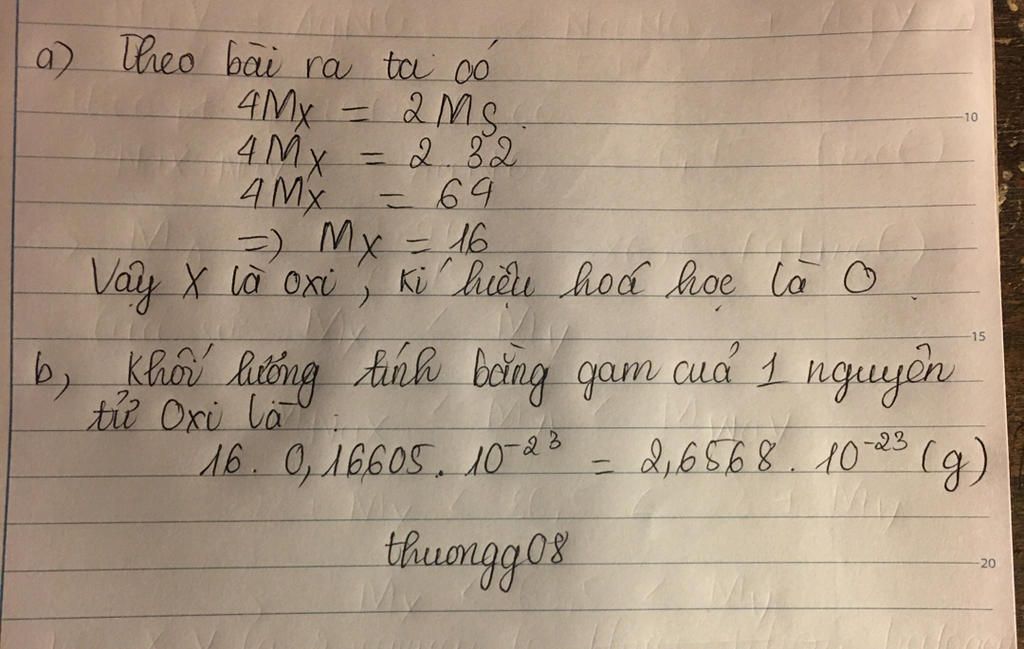 a) Theo bài ra ta có
4Mx = 2Ms.
4Mx = 2.32
4Mx = 64
=> Mx = 16
Vậy X là oxi, kí hiệu hoá học là O.
b, Khối lượng tính bằng gam cuả 1 nguyên
tử Oxi là :
16. 0,16605. 10⁻²³ = 2,6568. 10⁻²³ (g)
thuongg08
10
15
20